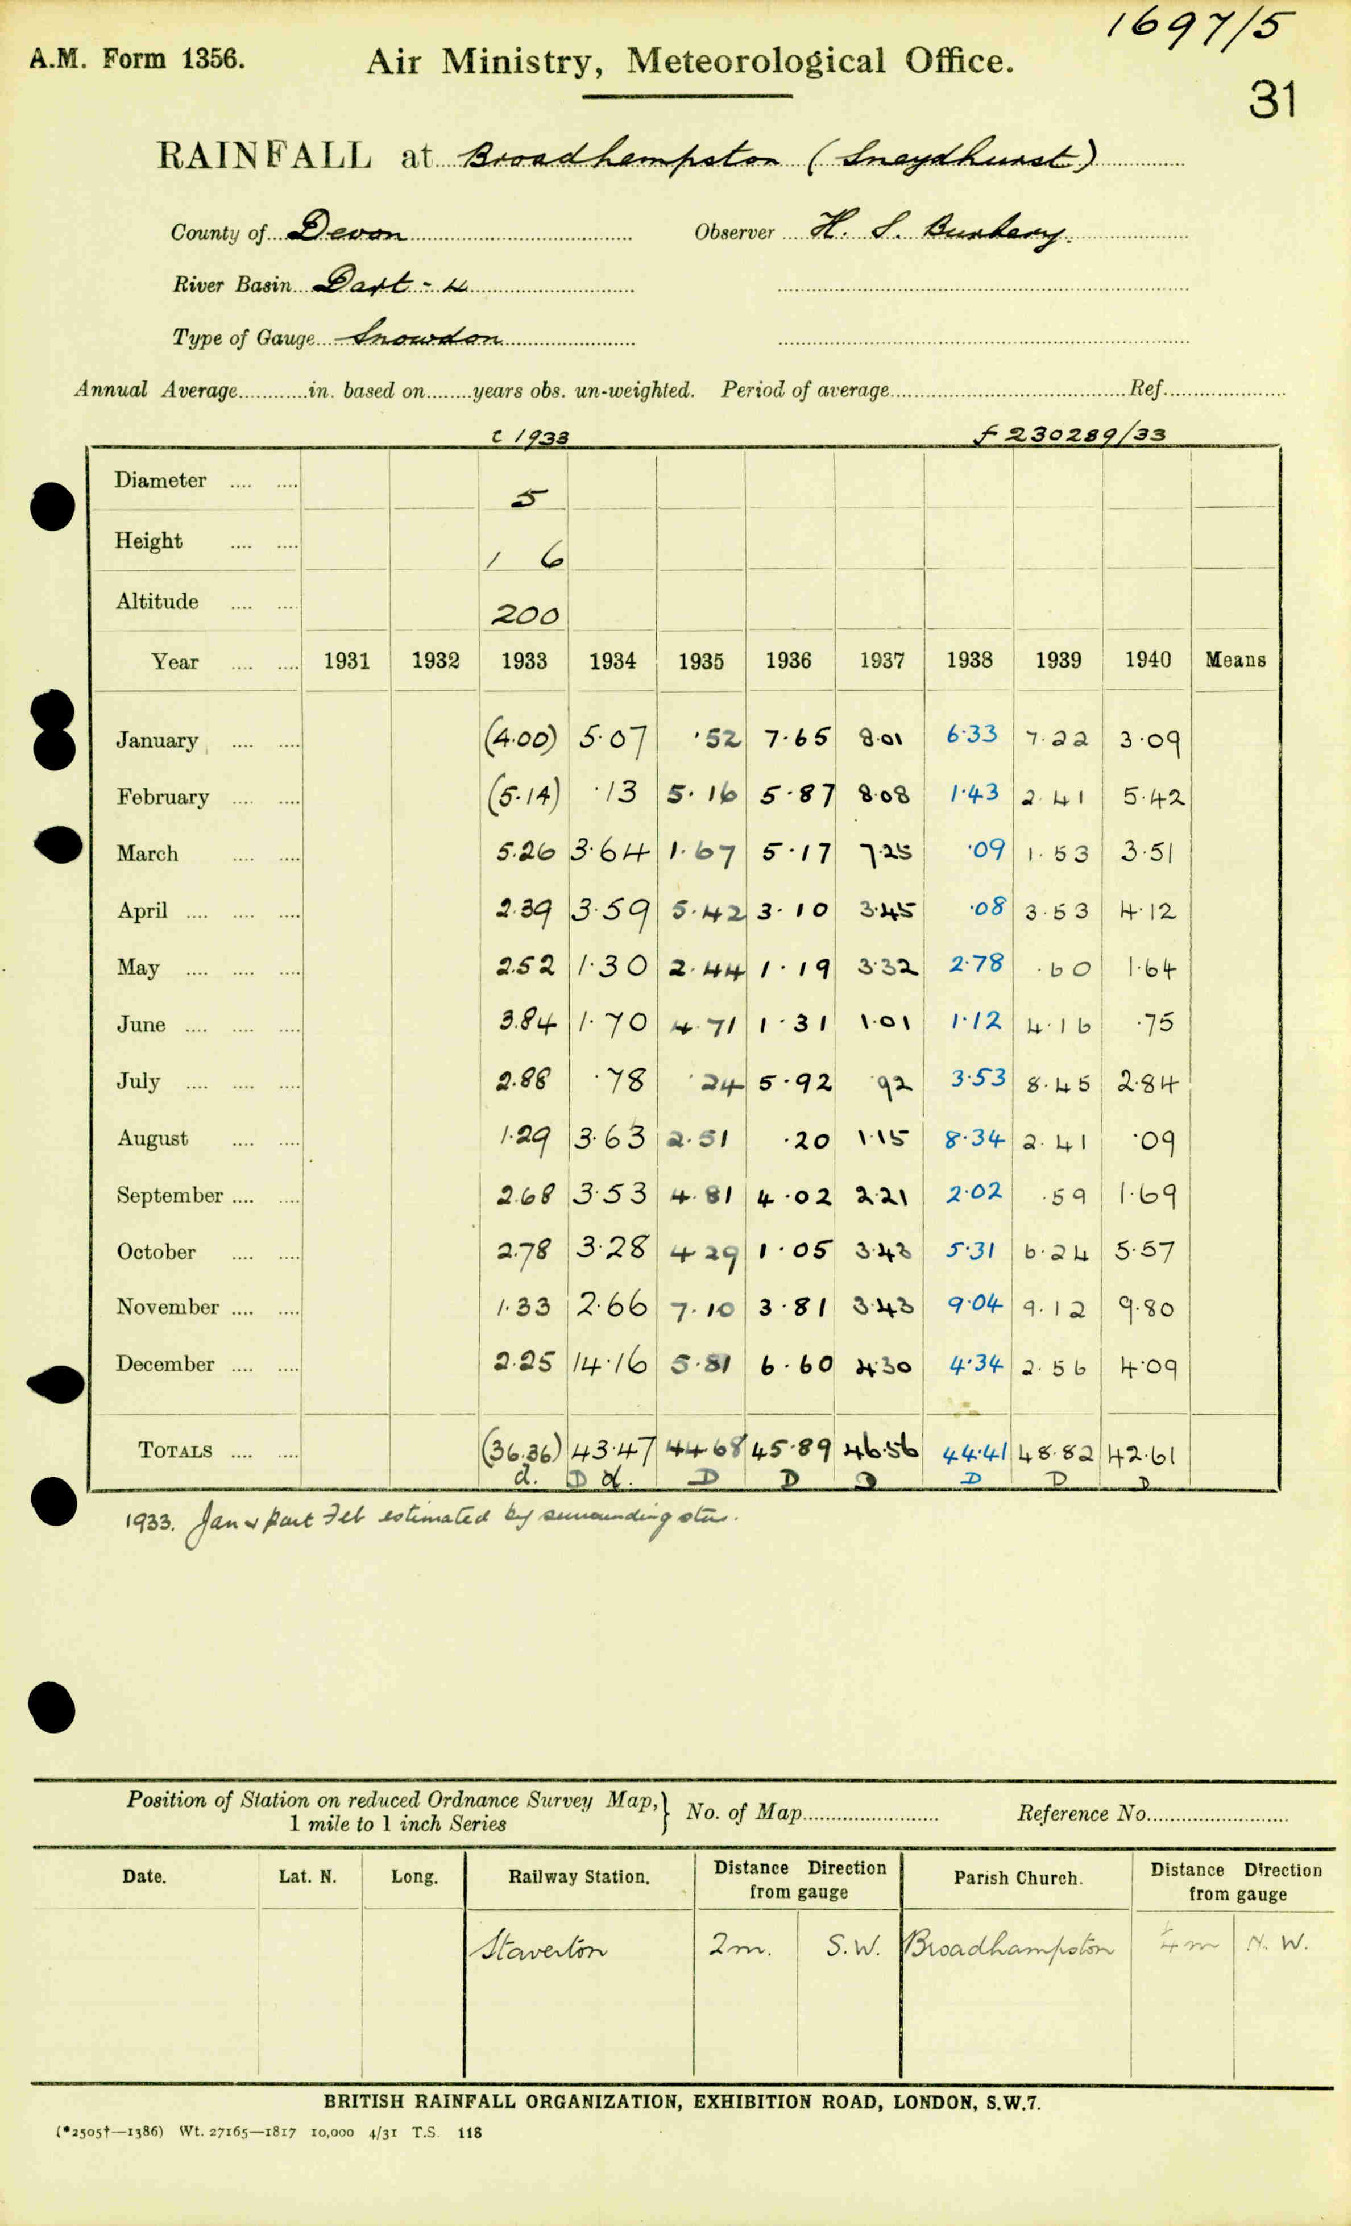 1697/5
A.M. Form 1356. Air Ministry, Meteorological Office.
31
RAINFALL at Broadhempston (Sneydhurst)
County of Devon Observer H. S.
River Basin Dart - 4
Type of Gauge Snowdon
Annual Average in. based on years obs. un-weighted. Period of average Ref.
1933 f 230289/33
Diameter 5
Height 1 6
Altitude 200
Year 1931 1932 1933 1934 1935 1936 1937 1938 1939 1940 Means
January (4.00) 5.07 .52 7.65 8.01 6.33 7.22 3.09
February (5.14) .13 5.16 5.87 8.08 1.43 2.41 5.42
March 5.26 3.64 1.67 5.17 7.25 .09 1.53 3.51
April 2.39 3.59 5.42 3.10 3.45 .08 3.53 4.12
May 2.52 1.30 2.44 1.19 3.32 2.78 .60 1.64
June 3.84 1.70 4.71 1.31 1.01 1.12 4.16 .75
July 2.88 .78 .24 5.92 .92 3.53 8.45 2.84
August 1.29 3.63 2.51 .20 1.15 8.34 2.41 .09
September 2.68 3.53 4.81 4.02 2.21 2.02 .59 1.69
October 2.78 3.28 4.29 1.05 3.43 5.31 6.24 5.57
November 1.33 2.66 7.10 3.81 3.43 9.04 9.12 9.80
December 2.25 14.16 5.81 6.60 4.30 4.34 2.56 4.09
TOTALS (36.36) 43.47 44.68 45.89 46.56 44.41 48.82 42.61
d. D d. D D D D D D
1933. Jan & part Feb estimated by surrounding stns.
Position of Station on reduced Ordnance Survey Map, } No. of Map Reference No.
1 mile to 1 inch Series
Date. Lat. N. Long. Railway Station. Distance Direction from gauge Parish Church. Distance Direction from gauge
Staverton 2m. S.W. Broadhampston ¼m N. W.
BRITISH RAINFALL ORGANIZATION, EXHIBITION ROAD, LONDON, S.W.7.
(*2505†—1386) Wt. 27165—1817 10,000 4/31 T.S. 118